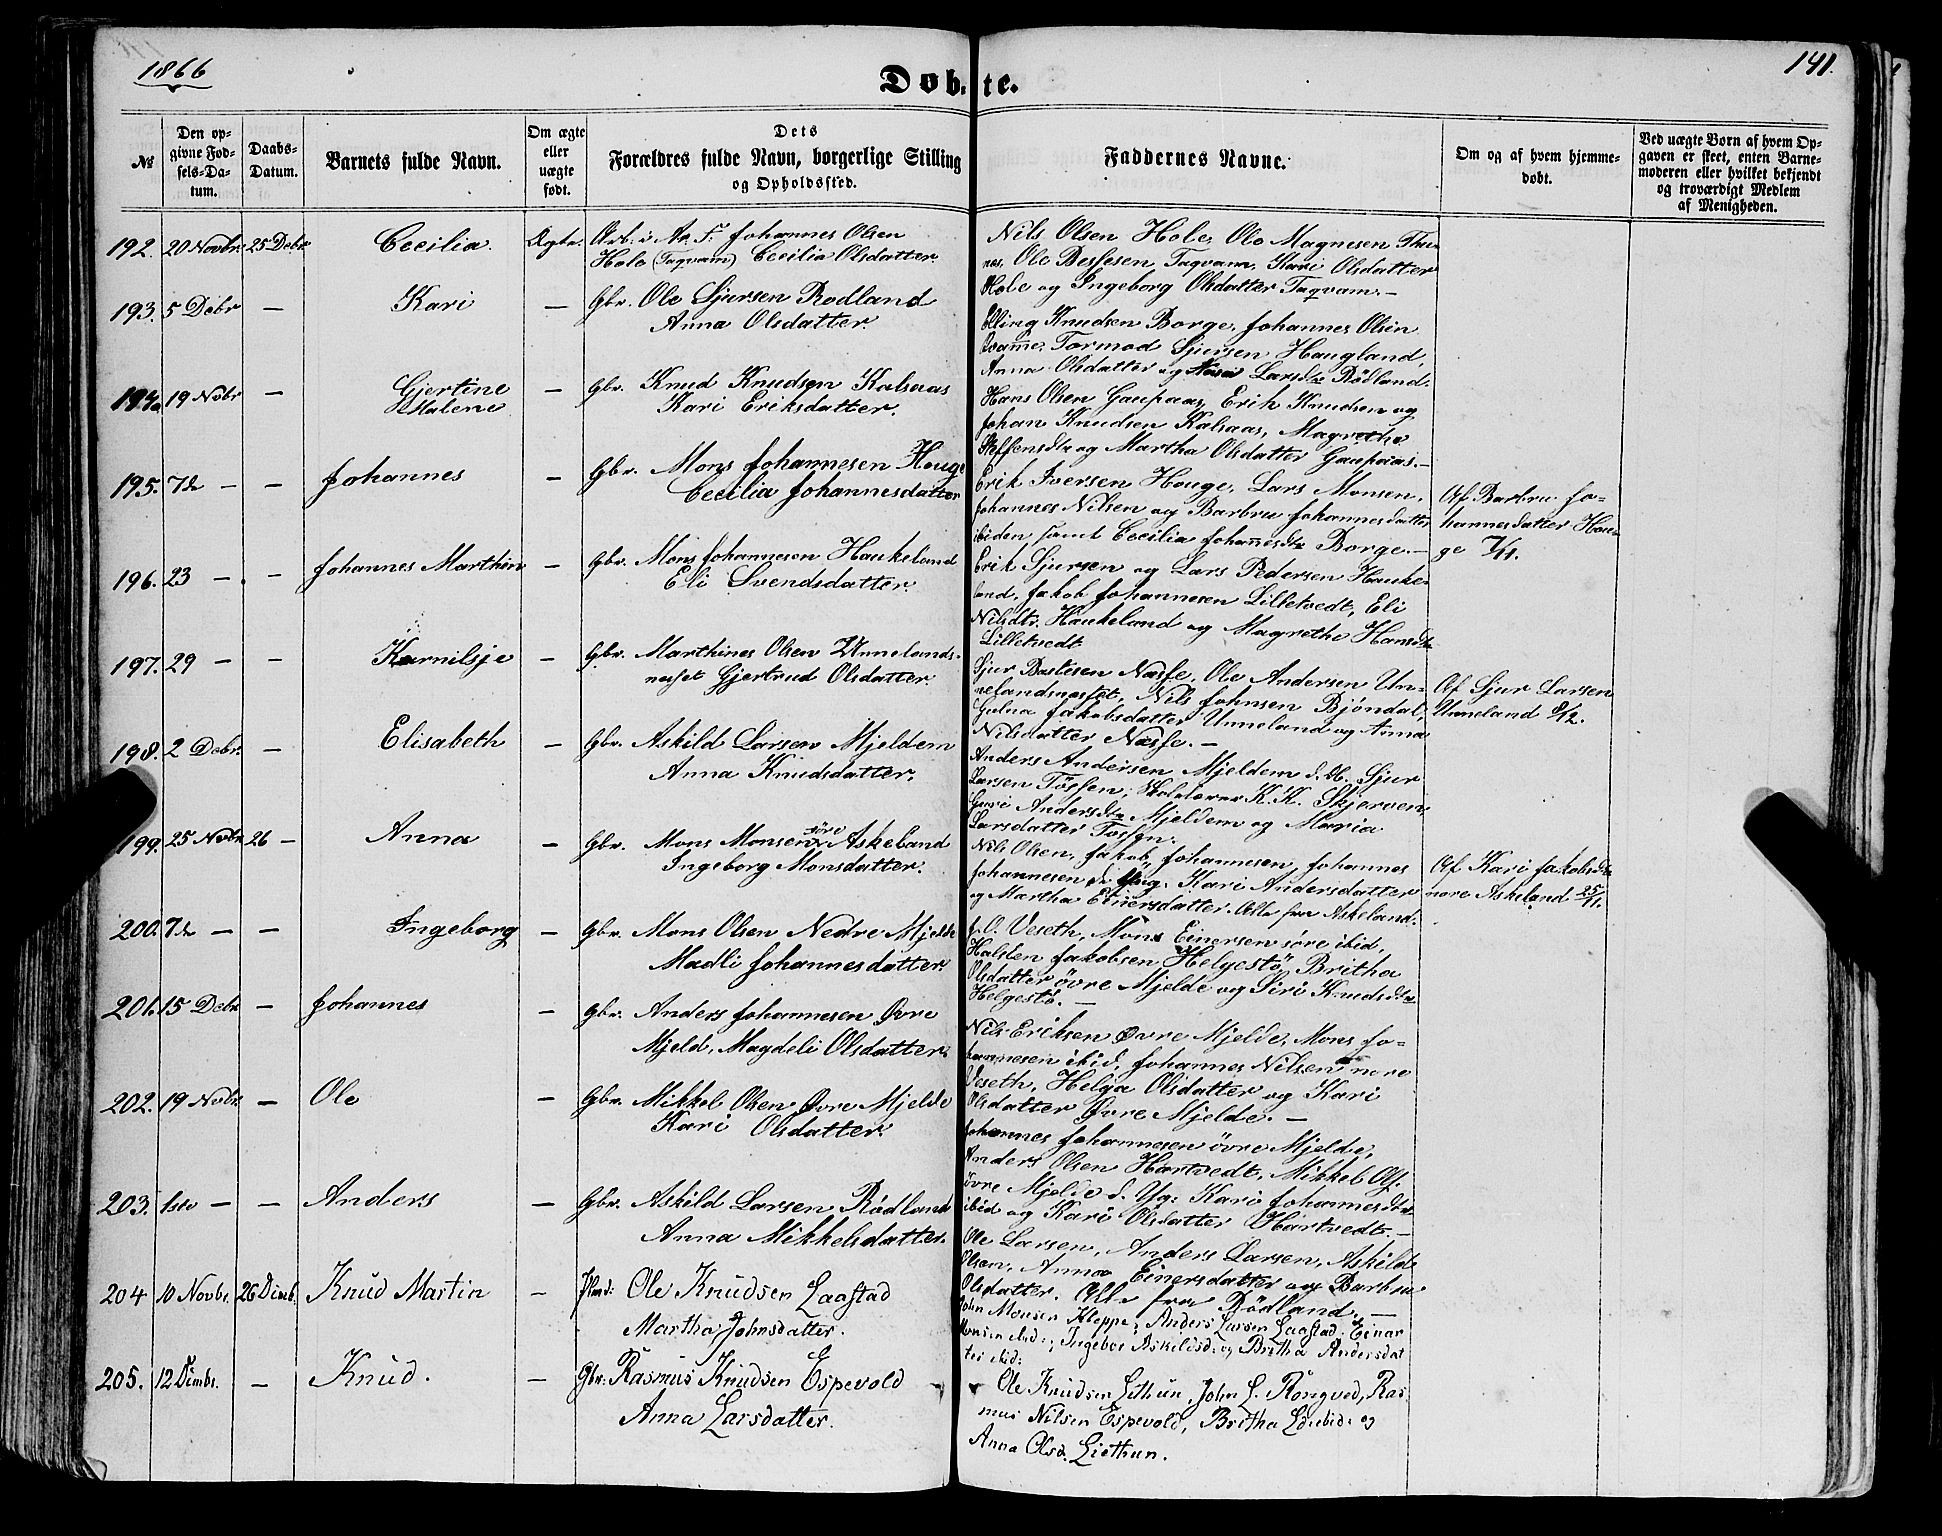 1866
Døbte.
141.
№
Den opgivne Fødsels-Datum.
Daabs-Datum.
Barnets fulde Navn.
Om ægte eller uægte født.
Dets Forældres fulde Navn, borgerlige Stilling og Opholdssted.
Faddernes Navne.
Om og af hvem hjemmedøbt.
Ved uægte Børn af hvem Opgaven er skeet, enten Barnemoderen eller hvilket bekjendt og troværdigt Medlem af Menigheden.
192. 20 Novbr. 25 Debr Cecilia. Ægte. Arb. i Ar. F. Johannes Olsen
Hole (Taqvam) Cecilia Olsdatter
Nils Olsen Hole, Ole Magnesen Thu-
nes, Ole Bessesen Taqvam, Kari Olsdatter
Hole og Ingeborg Olsdatter Taqvam.—
193. 5 Debr — Kari — Gbr. Ole Sjursen Rødland
Anna Olsdatter.
Elling Knudsen Borge, Johannes Olsen
Tormod Sjursen Haugland,
Anna Olsdatter og Larsdtr Rødland.
194. 19 Nobr — Gjertine
Malene — Gbr. Knud Knudsen Kalsaas
Kari Eriksdatter.
Hans Olsen Gaupaas, Erik Knudsen og
Johan Knudsen Kalsaas, Magrethe
Steffensdtr og Martha Olsdatter Gaupaas.—
195. 7de — — Johannes — Gbr. Mons Johannesen Houge
Cecilia Johannesdatter
Erik Iversen Houge, Lars Monsen,
Johannes Nilsen og Barbru Johannesdatter
ibiden, samt Cecilia Johannesdtr Borge.—
Af Barbru Jo-
hannesdatter Hou-
ge 7/11.
196. 23 — — Johannes Marthin — Gbr. Mons Johannesen Haukeland
Eli Svendsdatter.
Erik Sjursen og Lars Pedersen Hauke-
land, Jakob Johannesen Lilletvedt, Eli
Nilsdtr. Haukeland og Magrethe Hansdtr
Lilletvedt
197. 29 — — Karnilsje — Gbr. Marthines Olsen Unnelands-
næset Gjertrud Olsdatter.
Sjur Bastesen Næsse, Ole Andersen Un-
nelandsnæset, Nils Johnsen Bjøndal,
Jakobsdatter Unneland og Anna
Nilsdatter Næsse.—
Af Sjur Larsen
Unneland 8/12.
198. 2 Debr. — Elisabeth — Gbr. Askild Larsen Mjeldem
Anna Knudsdatter.
Anders Andersen Mjeldem d. Æ. Sjur
Larsen Tøssen, Skolelærer K. K. Skjerven,
Guri Andersdtr Mjeldem og Maria
Larsdatter Tøssen.
199. 25 Nobr. 26 — Anna — Gbr. Mons Monsen søre Askeland
Ingeborg Monsdatter.
Nils Olsen, Jakob Johannesen, Johannes
Johannesen d. Yng. Kari Andersdatter
og Martha Einersdatter. Alle fra Askeland.
Af Kari Jakobsdtr
nore Askeland 25/11.
200. 7de — — Ingeborg — Gbr. Mons Olsen Nedre Mjelde
Madli Johannesdatter.
J. O. Veseth, Mons Einersen søre ibid,
Halsten Jakobsen Helgestø, Britha
Olsdatter øvre Mjelde og Siri Knudsdtr
Helgestø.—
201. 15 Debr. — Johannes — Gbr. Anders Johannesen Øvre
Mjeld, Magdeli Olsdatter.
Nils Eriksen Øvre Mjelde, Mons Jo-
hannesen ibid, Johannes Nilsen nore
Veseth, Helga Olsdatter og Kari
Olsdatter Øvre Mjelde.—
202. 19 Nobr. — Ole — Gbr. Mikkel Olsen Øvre Mjelde
Kari Olsdatter.
Johannes Johannesen øvre Mjelde,
Anders Olsen Hartvedt, Mikkel Ols.
øvre Mjelde d. Yg. Kari Johannesdtr
ibid og Kari Olsdatter Hartvedt.—
203. 1ste — — Anders — Gbr. Askild Larsen Rødland
Anna Mikkelsdatter.
Ole Larsen, Anders Larsen, Askild
Olsen, Anna Einersdatter og Barbru
Olsdatter. Alle fra Rødland.—
204 10 Novbr. 26 Dmb. Knud Martin — Ole Knudsen Laastad
Martha Johnsdatter.
John Monsen Kleppe, Anders Larsen Laastad, Einar
Monsen ibid:, Ingebor Askildsd: og Britha Andersdat
ter ibid:
205. 12 Dmbr. — Knud. — Gbr: Rasmus Knudsen Espevold
Anna Larsdatter.
Ole Knudsen Liethun, John L. Rongved, Ras-
mus Nilsen Espevold, Britha Ldr ibid: og
Anna Olsd. Liethun.